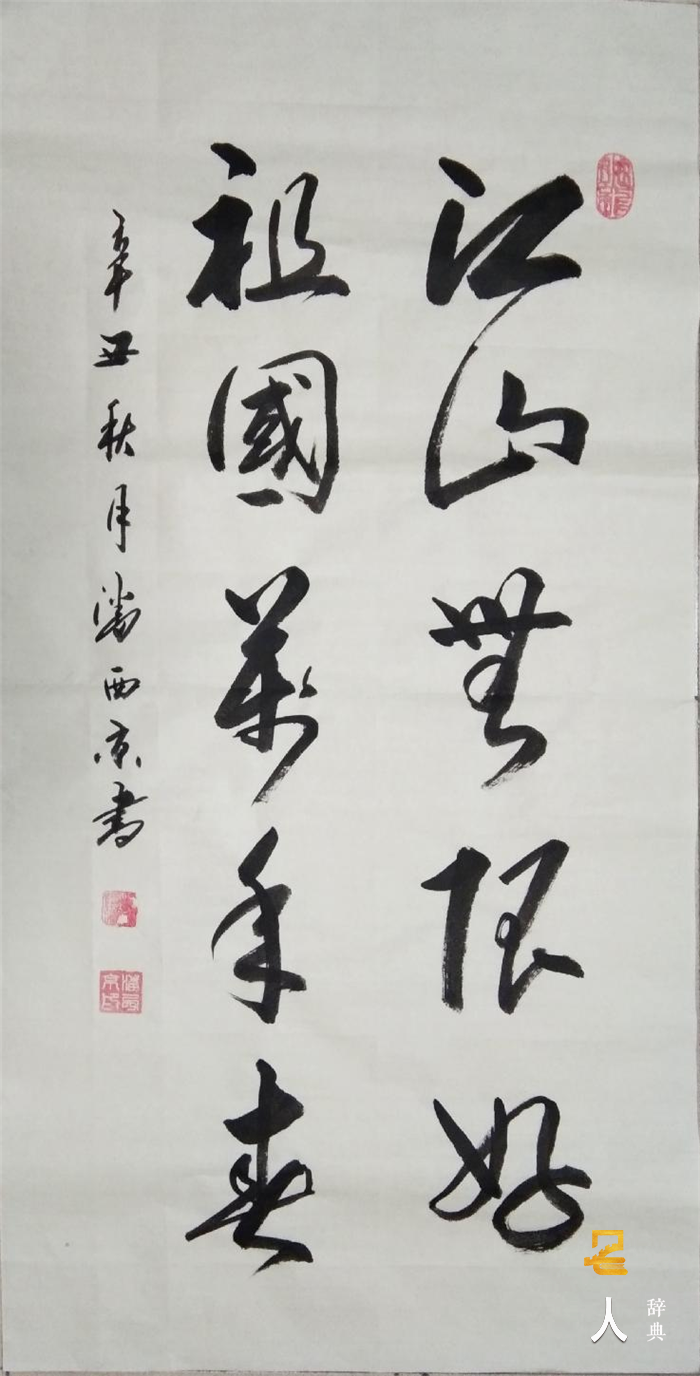 江山無限好
祖國萬年春
辛丑秋月潘西京書
名人辞典